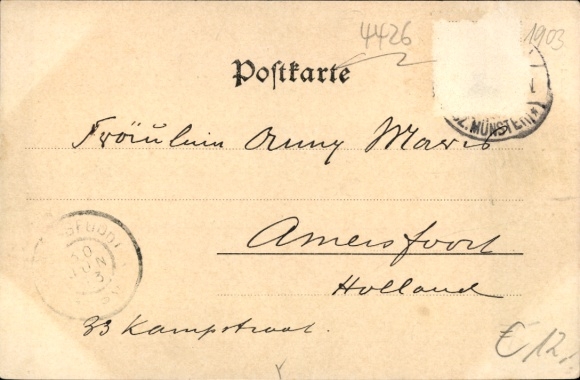 4426
1903
Postkarte
BZ. MÜNSTER(W)
Fräulein Anny Maris
Amersfoort
Holland
33 Kampstraat.
€ 12,